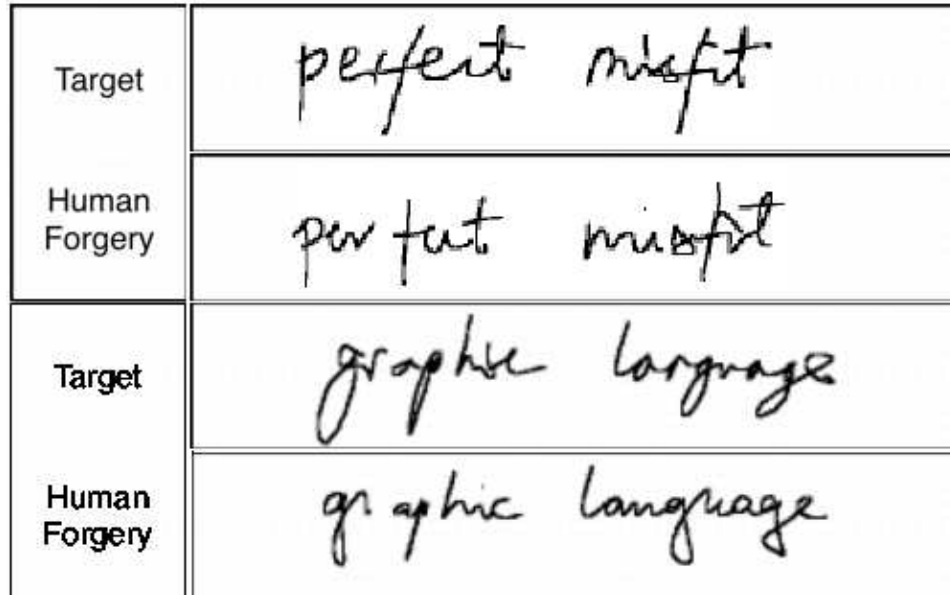 Target perfect misfit
Human
Forgery
perfect misfit
Target graphic language
Human
Forgery
graphic language